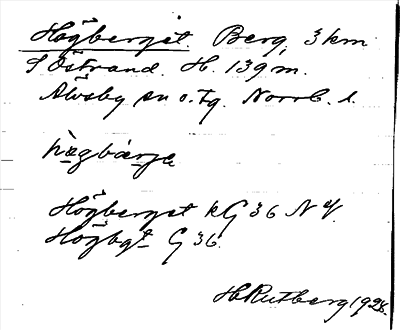 Högberget. Berg, 3 km
S Östrand. H. 139 m.
Älvsby sn o. tg. Norrb. l.
hø̀gbærje
Högberget kG 36 N
Högbgt G 36.
H Rutberg 1928.